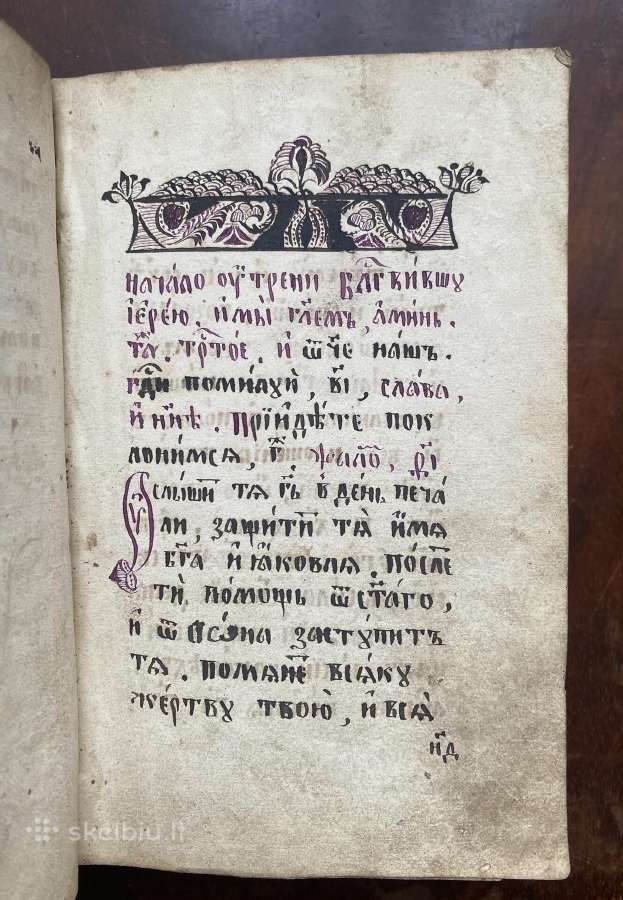 нача́ло оу҆́трени бл҃гви́вшу
і҆ере́ю. и҆ мы̀ гл҃емъ, а҆ми́нь.
та́ж. трⷭ҇то́е. и҆ ѿ́че нашъ.
гд҇и поми́луй, в҃і, слава,
и҆ ны́нѣ. прїидѣ́те пок
лони́мся, г҃. ѱало́м, р҃і
Оу҆слы́шит тѧ гд҇ь в̾ де́нь печа
ли, защити́т тѧ̀ и҆́мѧ
бг҃а и҆ ꙗ҆́ковлѧ. по́сле
тѝ по́мощь ѿ ст҃а́го,
и҆ ѿ сїѡ́на засту́питъ
тѧ̀. помѧне́т всѧ́ку
же́ртву твою̀, и҆ всѧ̀
н҃д
skelbiu.lt